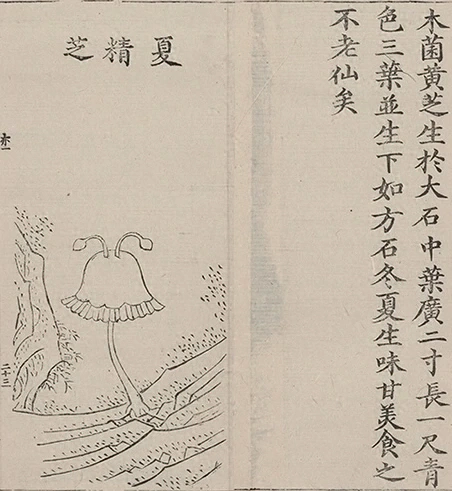 木菌黄芝生於大石中葉廣二寸長一尺青
色三葉並生下如方石冬夏生味甘美食之
不老仙矣
夏精芝
二十三